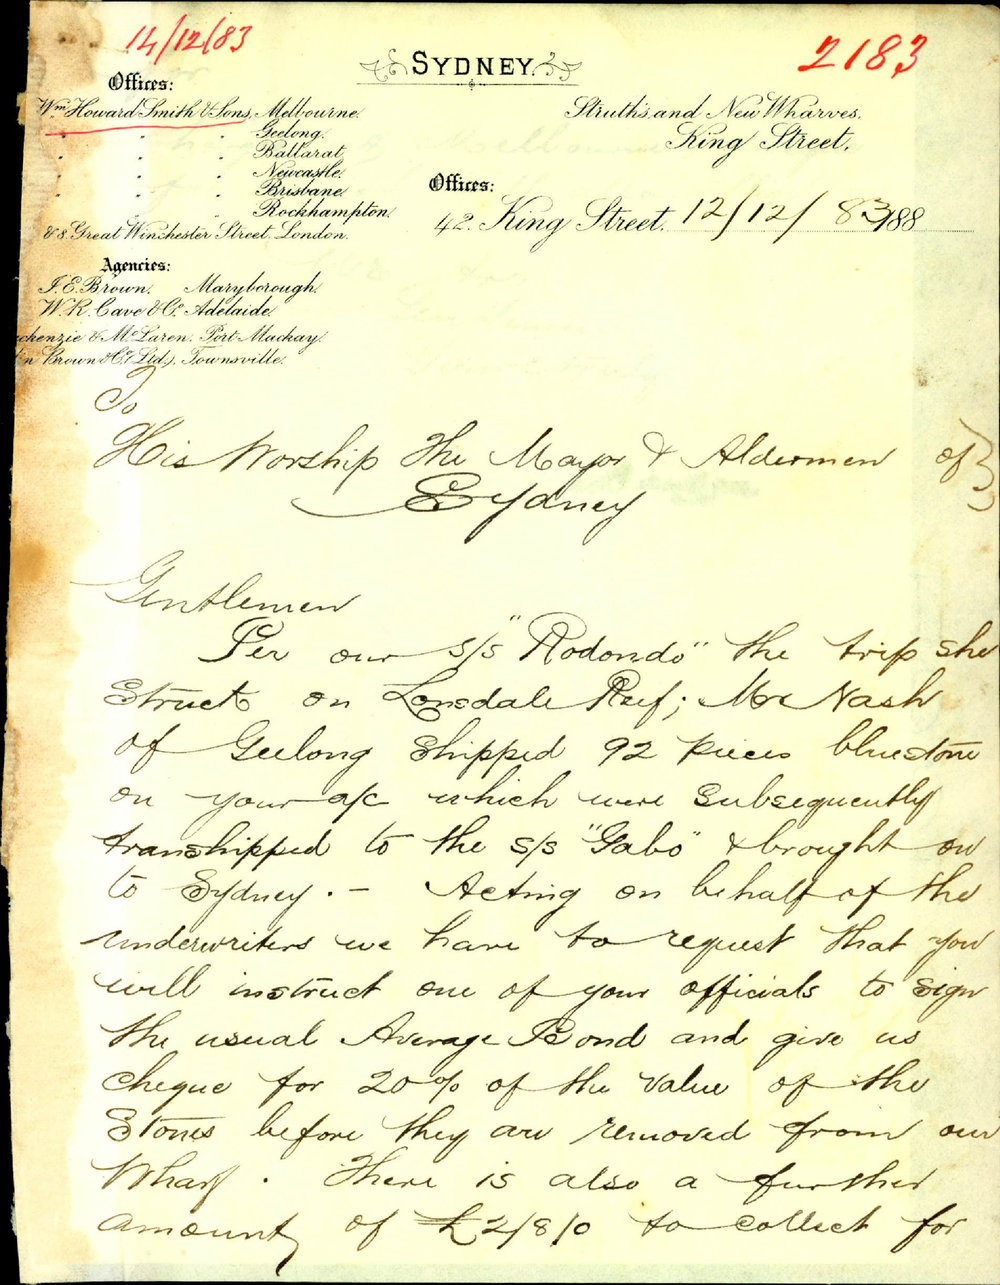 14/12/83
2183
SYDNEY.
Offices:
Wm. Howard Smith & Sons, Melbourne.
" " " Geelong.
" " " Ballarat.
" " " Newcastle.
" " " Brisbane.
" " " Rockhampton.
& 8. Great Winchester Street. London.
Agencies:
J.E. Brown. Maryborough.
W.R. Cave & Co. Adelaide.
ckenzie & McLaren. Port Mackay.
n Brown & Co. (Ltd.). Townsville.
Struth's and New Wharves.
King Street.
Offices:
42. King Street. 12/12/83/188
To
His Worship The Mayor & Aldermen of
Sydney
Gentlemen
Per our s/s "Rodondo" the trip she
Struck on Lonsdale Reef; Mr Nash
of Geelong Shipped 92 pieces bluestone
on your a/c which were subsequently
transhipped to the s/s "Gabo" & brought on
to Sydney. - Acting on behalf of the
underwriters we have to request that you
will instruct one of your officials to sign
the usual Average Bond and give us
cheque for 20% of the value of the
Stones before they are removed from our
Wharf. There is also a further
amount of £2/8/0 to collect for